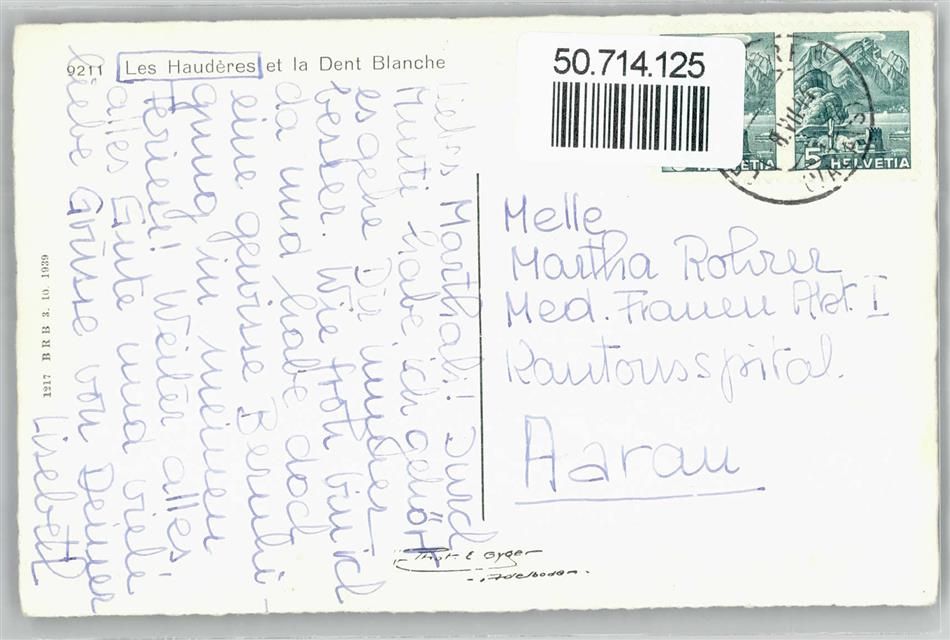 9211 Les Haudères et la Dent Blanche
50.714.125
5 HELVETIA
HELVETIA
Liebes Marthali! Durch
Mutti habe ich gehört
es gehe Dir immer
besser. Wie froh bin ich
da und habe doch
eine gewisse Beruhi-
gung in meinen
Ferien! Weiter alles
alles Gute und viele
liebe Grüsse von Deiner
Lisebeth
Melle
Martha Rohrer
Med. Frauen Abt. I
Kantonsspital.
Aarau
1217 BRB 3. 10. 1939
Phot. E Gyger
Adelboden.